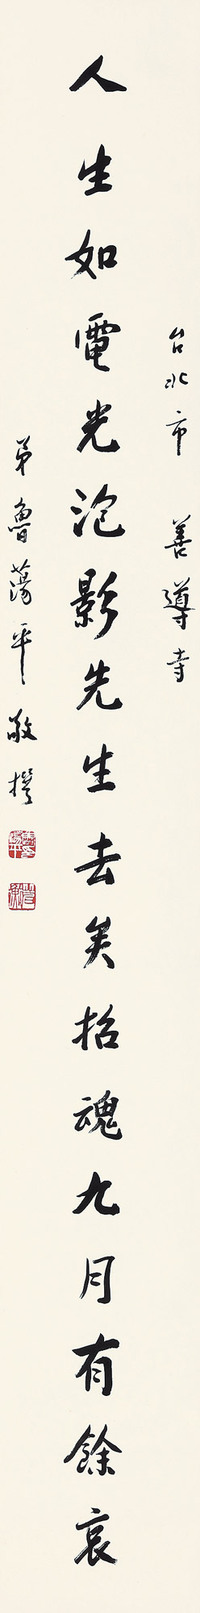 台北市 善導寺
人生如電光泡影先生去矣招魂九月有餘哀
弟魯蕩平敬撰